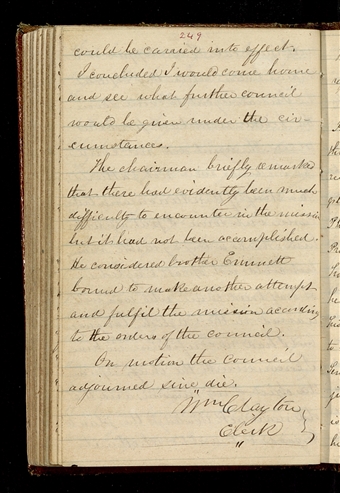 249
could be carried into effect.
I concluded I would come home
and see what further council
would be given under the cir-
cumstances.
The chairman briefly remarked
that there had evidently been much
difficulty to encounter in the mission
but it had not been accomplished.
He considered brother Emmett
bound to make another attempt
and fulfil the mission according
to the orders of the council.
On motion the council
adjourned sine die.
Wm Clayton
Clerk